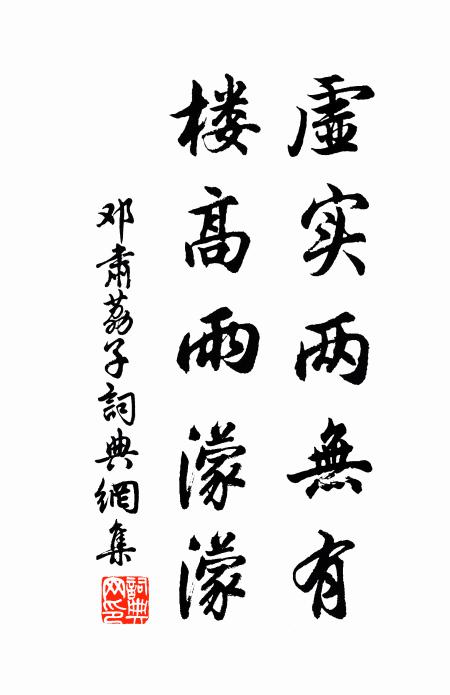 虚实两無有
楼高雨濛濛
邓肃荔子詞典網集
詞典网印